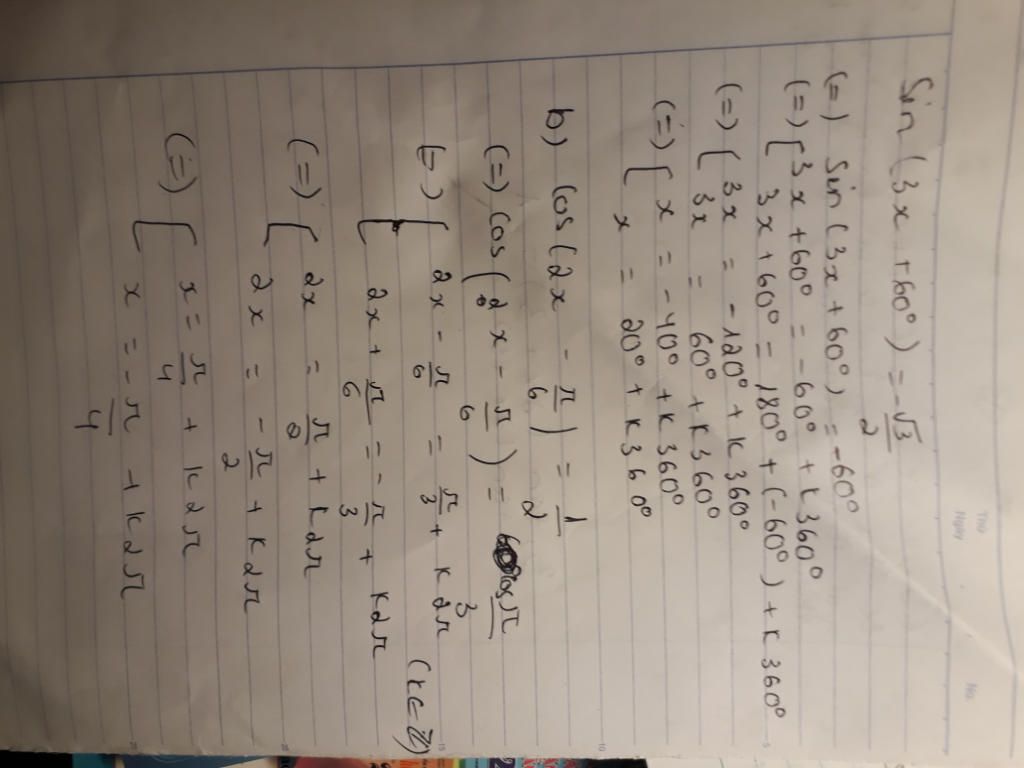 Thứ
Ngày
No.
Sin (3x + 60°) = -√3/2
(=) Sin (3x + 60°) = -60°
(=) [ 3x + 60° = -60° + k360°
3x + 60° = 180° + (-60°) + k360°
(=) [ 3x = -120° + k360°
3x = 60° + k360°
(=) [ x = -40° + k360°
x = 20° + k360°
b) cos (2x - π/6) = 1/2
(=) cos (2x - π/6) = cos π/3
(=) [ 2x - π/6 = π/3 + k2π
[ 2x + π/6 = -π/3 + k2π (k∈Z)
(=) [ 2x = π/2 + k2π
2x = -π/2 + k2π
(=) [ x = π/4 + k2π
x = -π/4 + k2π
5
10
15
20
25